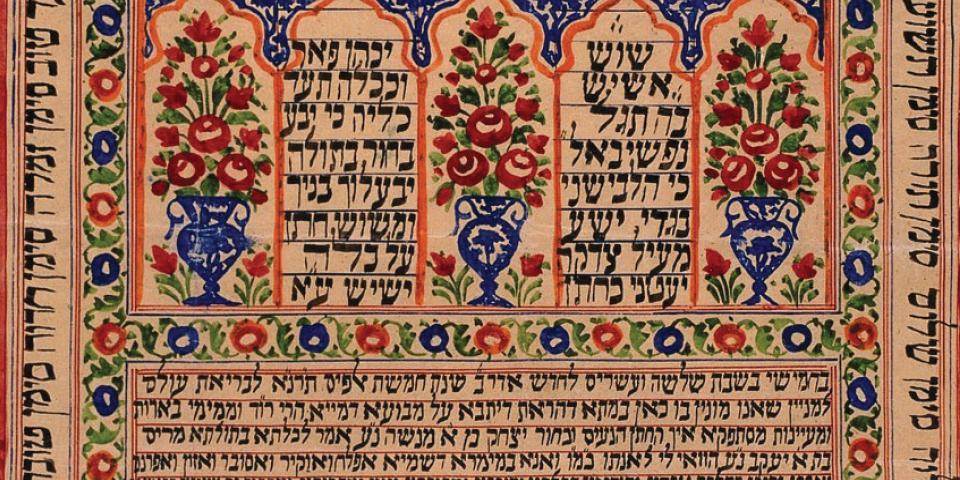 שוש
אשיש
בה תגל
נפשי באל
כי הלבישני
בגדי ישע
מעיל צדקה
יעטני כחתן
יכהן פאר
וככלה תע
כליה כי יבע
בחור בתולה
יבעלוך בניך
ומשוש חתן
על כלה
ישיש ע״א
בחמישי בשבת שלשה ועשרים לחודש אדר ב' שנת חמשת אלפים תרנ״א לבריאת עולם
למניין שאנו מונין בו כאן במתא דהראת דיתבא על מבועא דמייא הרי רוד וממימי בארות
ומעיינות מסתפקא איך החתן הנעים ובחור יצחק בן א מנשה נ״ע אמר לכלתא בתולתא מרים
בת א יעקב נ״ע הוואי לי לאנתו כמו ואנא במימרא דשמיא אפלח ואוקיר ואסובר ואזון ואפרנס
סימן תורה סימן שלום סימן
טוב סימן זמרה סימן חדוה סימן